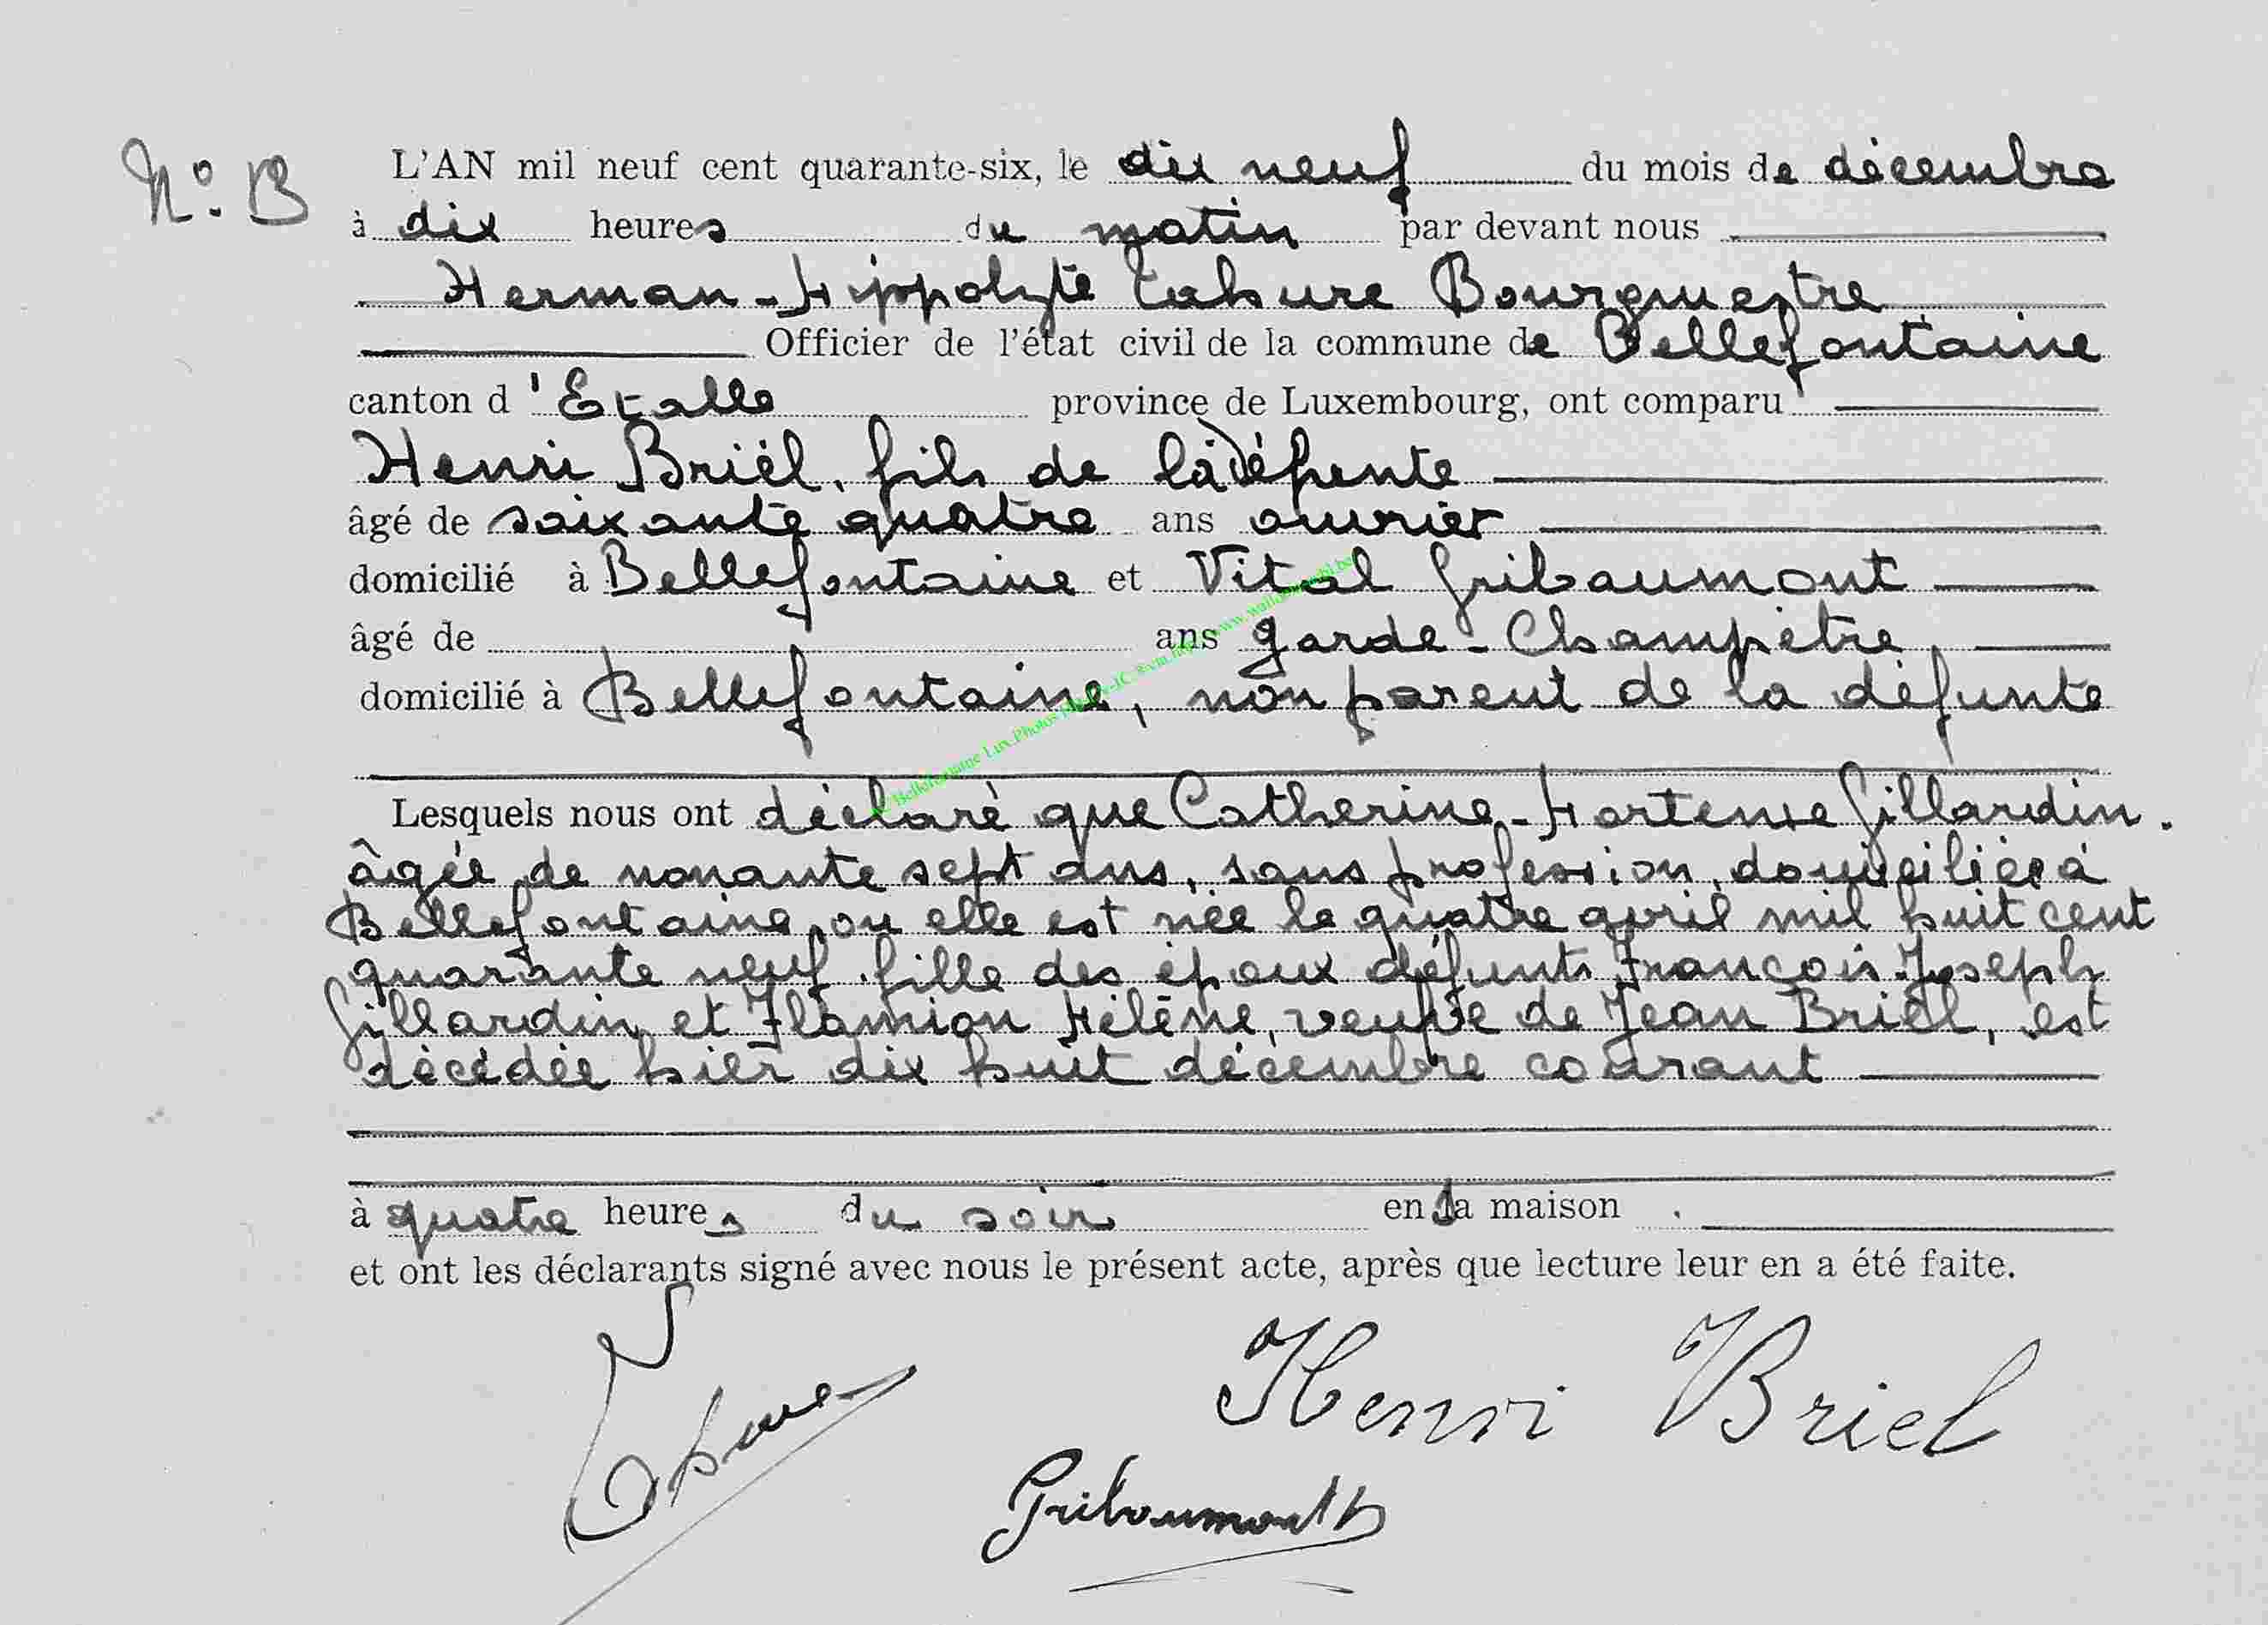 N°. 13
L'AN mil neuf cent quarante-six, le dix neuf du mois de décembre
à dix heures du matin par devant nous
Herman-Hippolyte Lahure Bourgmestre
Officier de l'état civil de la commune de Bellefontaine
canton d'Etalle province de Luxembourg, ont comparu
Henri Briël, fils de la défunte
âgé de soixante quatre ans ouvrier
domicilié à Bellefontaine et Vital Gribaumont
âgé de ans garde-Champêtre,
domicilié à Bellefontaine, non parent de la défunte
Lesquels nous ont déclaré que Catherine-Hortense Gillardin.
âgée de nonante sept ans, sans profession, domiciliée à
Bellefontaine, ou elle est née le quatre avril mil huit cent
quarante neuf, fille des époux défunts François-Joseph
Gillardin et Flamion Hélène, veuve de Jean Briël, est
décédée hier dix huit décembre courant
à quatre heures du soir en sa maison .
et ont les déclarants signé avec nous le présent acte, après que lecture leur en a été faite.
Henri Briel
Gribaumont